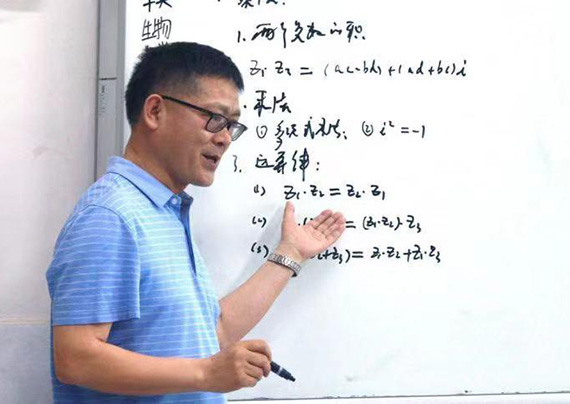 生物
1. 两个复数的积
z₁·z₂ = (ac-bd)+(ad+bc)i
乘法
① 多项式乘法; ② i² = -1
3. 运算律:
(1) z₁·z₂ = z₂·z₁
(2) = (z₁·z₂)·z₃
(3) +z₃) = z₁·z₂+z₁·z₃